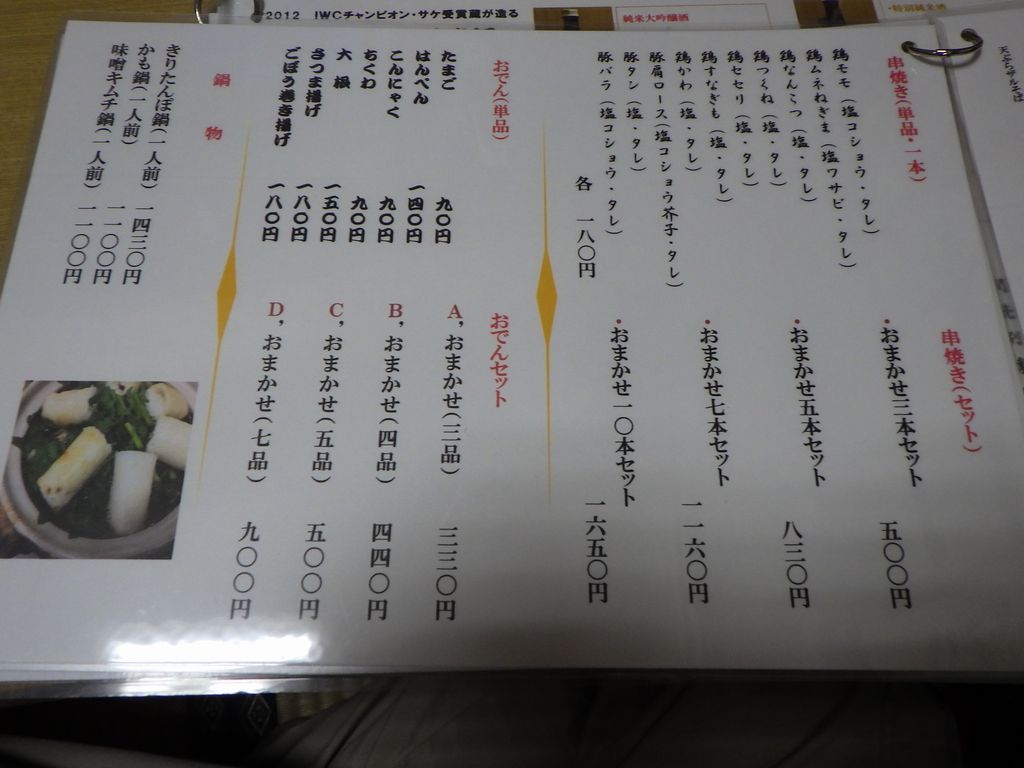 2012 IWCチャンピオン・サケ受賞蔵が造る
純米大吟醸酒
・特別純米酒
天ぷらザルそば
串焼き(単品・一本)
鶏モモ(塩コショウ・タレ)
鶏ムネねぎま(塩ワサビ・タレ)
鶏なんこつ(塩・タレ)
鶏つくね(塩・タレ)
鶏セセリ(塩・タレ)
鶏すなぎも(塩・タレ)
鶏かわ(塩・タレ)
豚肩ロース(塩コショウ芥子・タレ)
豚タン(塩・タレ)
豚バラ(塩コショウ・タレ)
各 一八〇円
串焼き(セット)
・おまかせ三本セット 五〇〇円
・おまかせ五本セット 八三〇円
・おまかせ七本セット 一一六〇円
・おまかせ一〇本セット 一六五〇円
おでん(単品)
たまご 九〇円
はんぺん 一四〇円
こんにゃく 九〇円
ちくわ 九〇円
大根 一五〇円
さつま揚げ 一八〇円
ごぼう巻き揚げ 一八〇円
おでんセット
A,おまかせ(三品) 三三〇円
B,おまかせ(四品) 四四〇円
C,おまかせ(五品) 五〇〇円
D,おまかせ(七品) 九〇〇円
鍋物
きりたんぽ鍋(一人前) 一四三〇円
かも鍋(一人前) 一一〇〇円
味噌キムチ鍋(一人前) 一一〇〇円